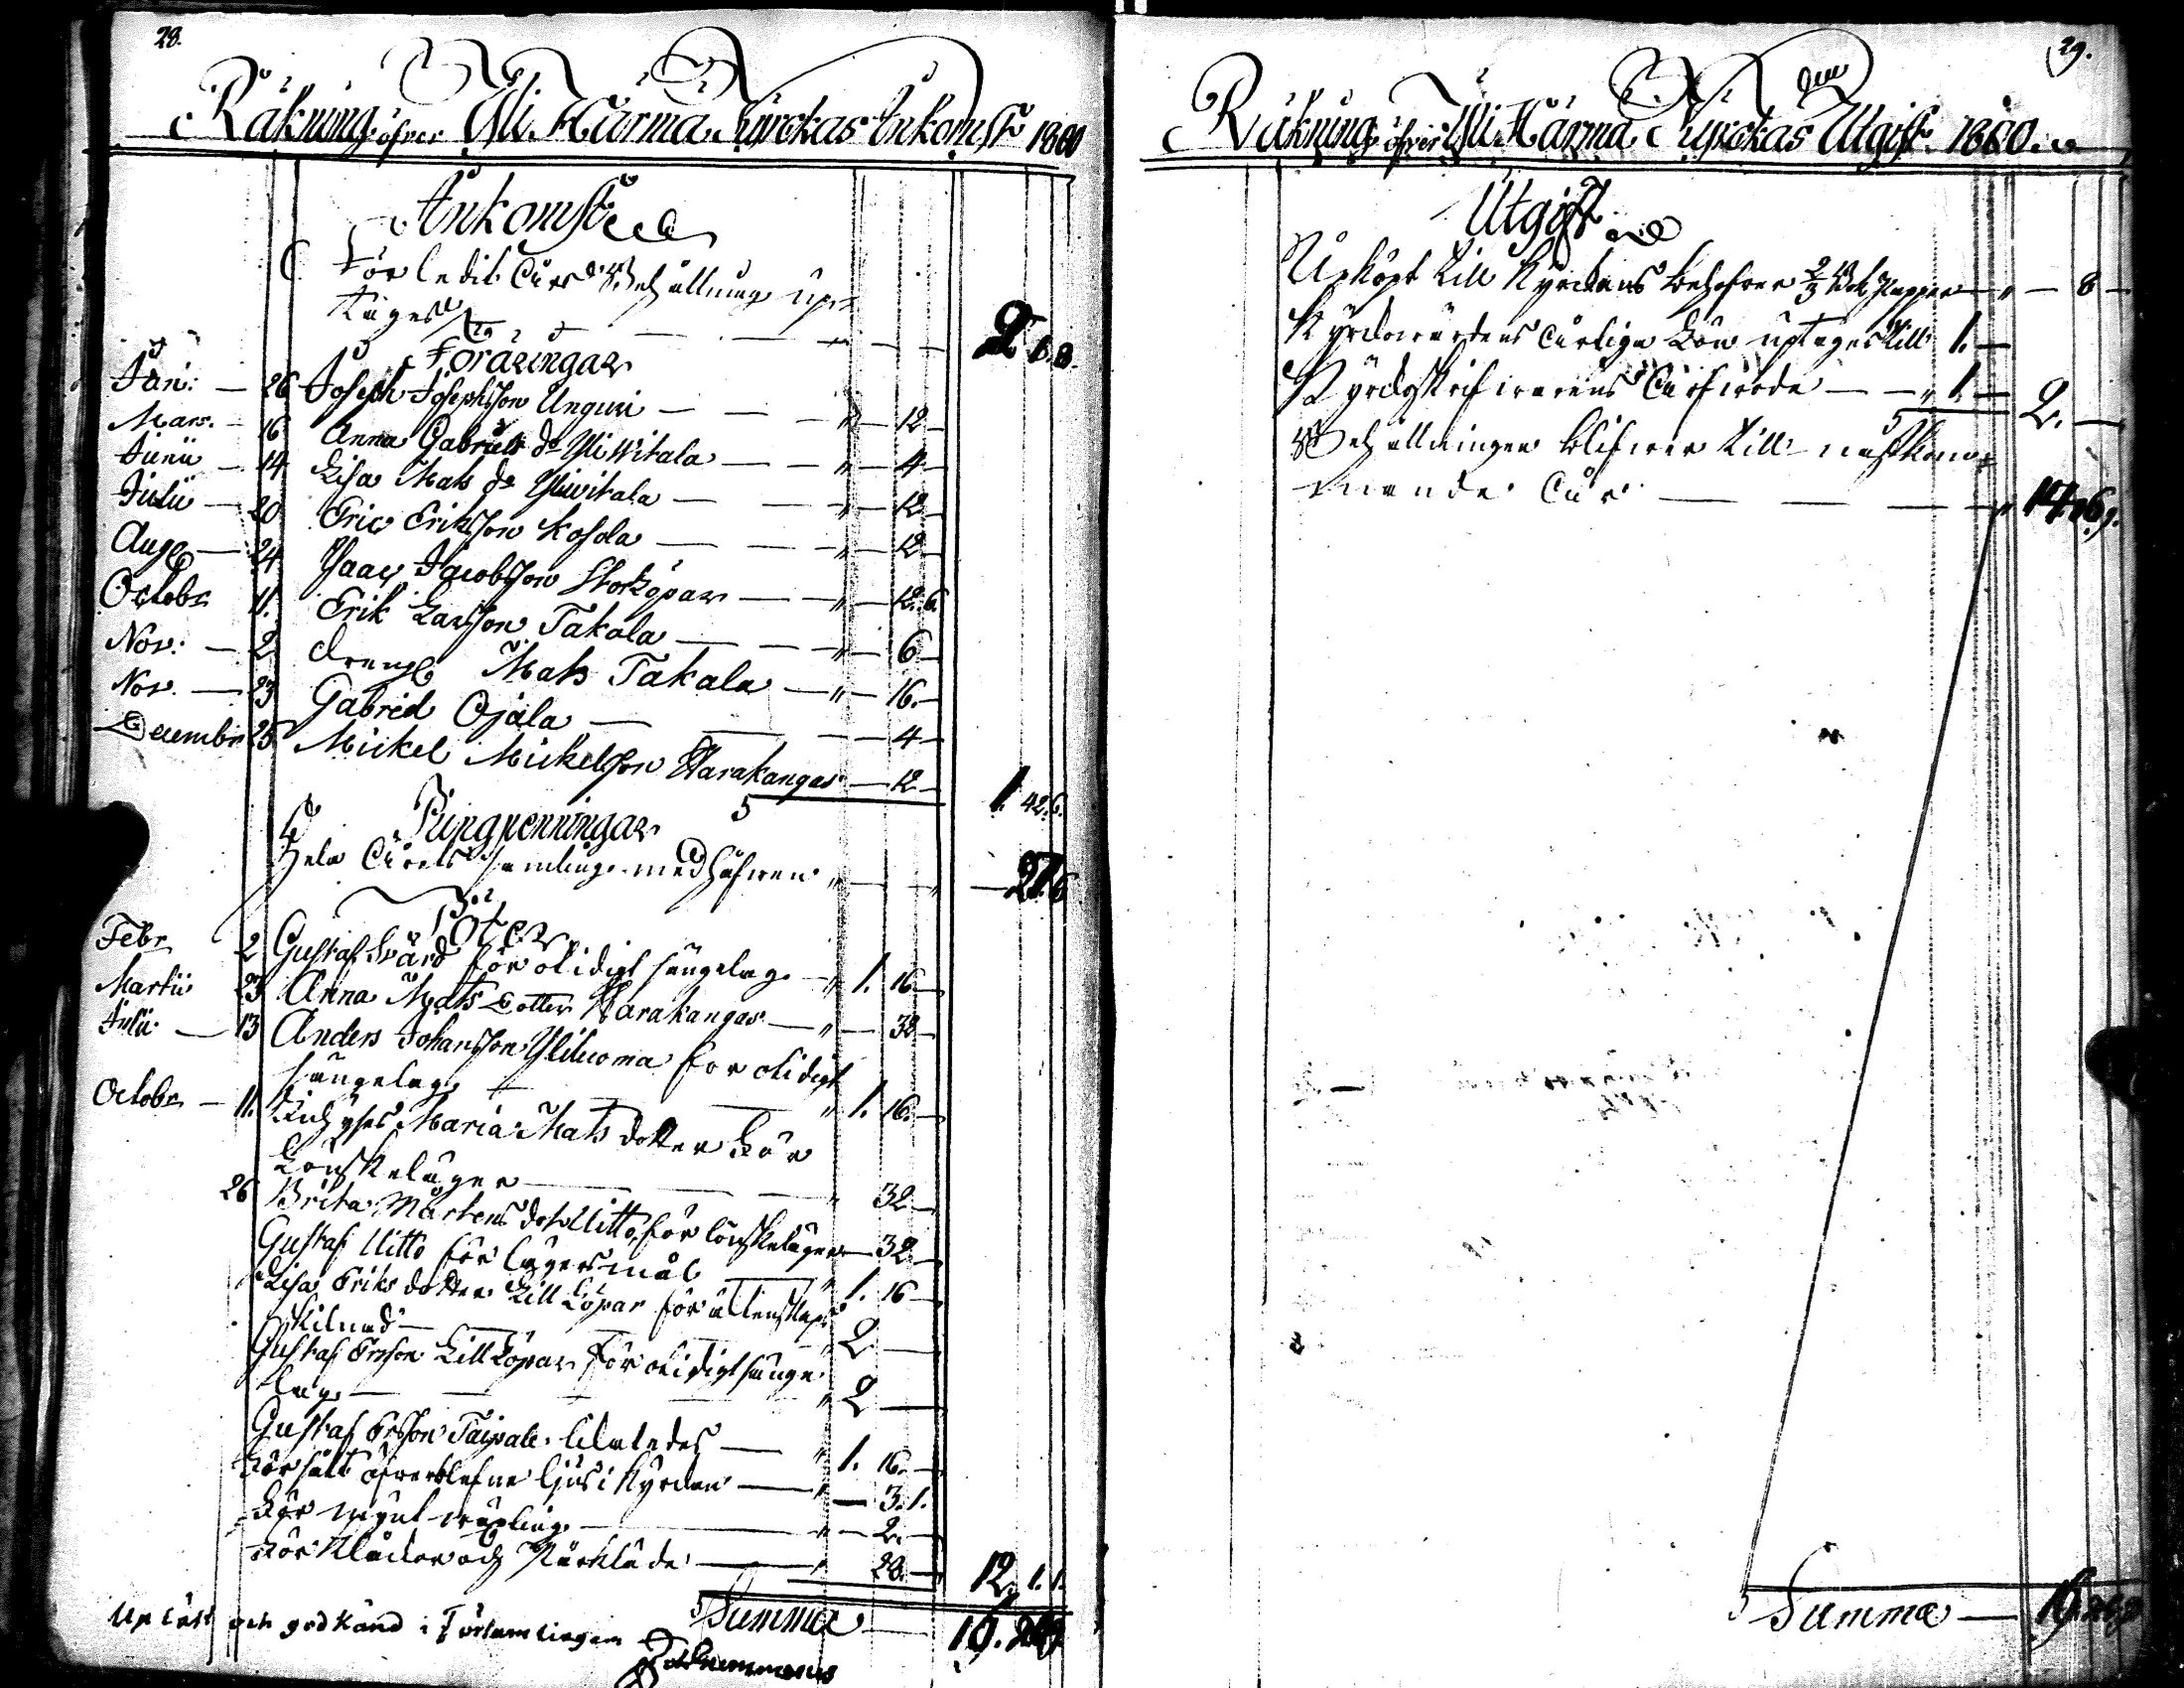 28.
Räkning öfver Yli Härmä Kÿrckas Inkomst 1800
Inkomst
Förledit Åhrs Behållning up-
tages
2 6.8.
Föräringar
Jan: — 26 Joseph Josephsson Unguri — 12 —
Mars. — 16 Anna Gabriels dr Yliwitala — 4 —
Junii — 14 Lisa Mats dr Yliwitala — 12 —
Julii — 20 Eric Eriksson Kosola — 12 —
Aug — 24 Isaac Jacobsson Storköpar — 12. 6
Octobr 11. Erik Larsson Takala — 6 —
Nov: — 2 dreng Mats Takala — 16. —
Nov. — 23 Gabriel Ojala — 4 —
Decembr 25 Mickel Mickelsson Harakangas — 12 —
1. 42. 6.
Pungpenningar
Hela Åhrets samling med håfwen — 27. 6
Böter
Febr 2 Gustaf Svärd för olidigt sängelag — 1. 16 —
Martii 23 Anna Mats dotter Harakangas — 32 —
Julii — 13 Anders Johansson Yliluoma för olidigt
sängelag — 1. 16. —
Octobr — 11. Maria Mats dotter för
Lönskeläger — 32 —
26 Brita Mårtens dotr Uitto, för lönskeläger — 32 —
Gustaf Uitto för lägersmål — 1. 16 —
Lisa Eriks dotter Lill Löpar för ächtenskaps
skilnad — 2 —
Gustaf Ersson Lill Löpar för olidigt sänge
lag — 2 —
Gustaf Ersson Taipale likaledes — 1. 16. —
För sålt öfwerblefne ljus i Kyrckan — 3. 1.
För mynt wäxling — 2. —
För Klåckor och Bårkläde — 28. —
12. 1. 1.
Summa — 16. 26.9
Upläst och godkänd i Församlingen
29.
Räkning öfver Yli Härmä Kyrckas Utgift 1800.
Utgift
Upköpt till Kyrckans behofwer 2/3 Bok Papper — 8 —
Kyrckowärdens Årliga Lön uptages till 1. —
Kyrckoskrifwarens Årswärde — 1. —
2. —
Behållningen blifwer till nästkom-
mande År — 14. 26 9.
Summa — 16. 26.9